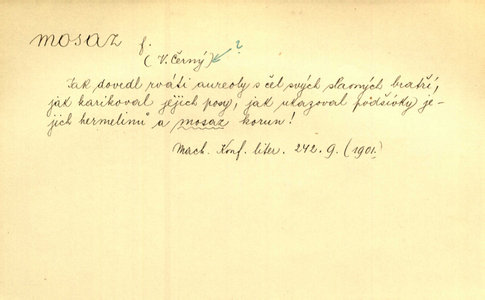 mosaz f.
(V. Černý) ?
Jak dovedl rváti aureoly s čel svých slavných bratří,
jak karikoval jejich posy, jak ukazoval podšívky je-
jich hermelinů a mosaz korun!
Mach. Konf. liter. 242. 9. (1901.)